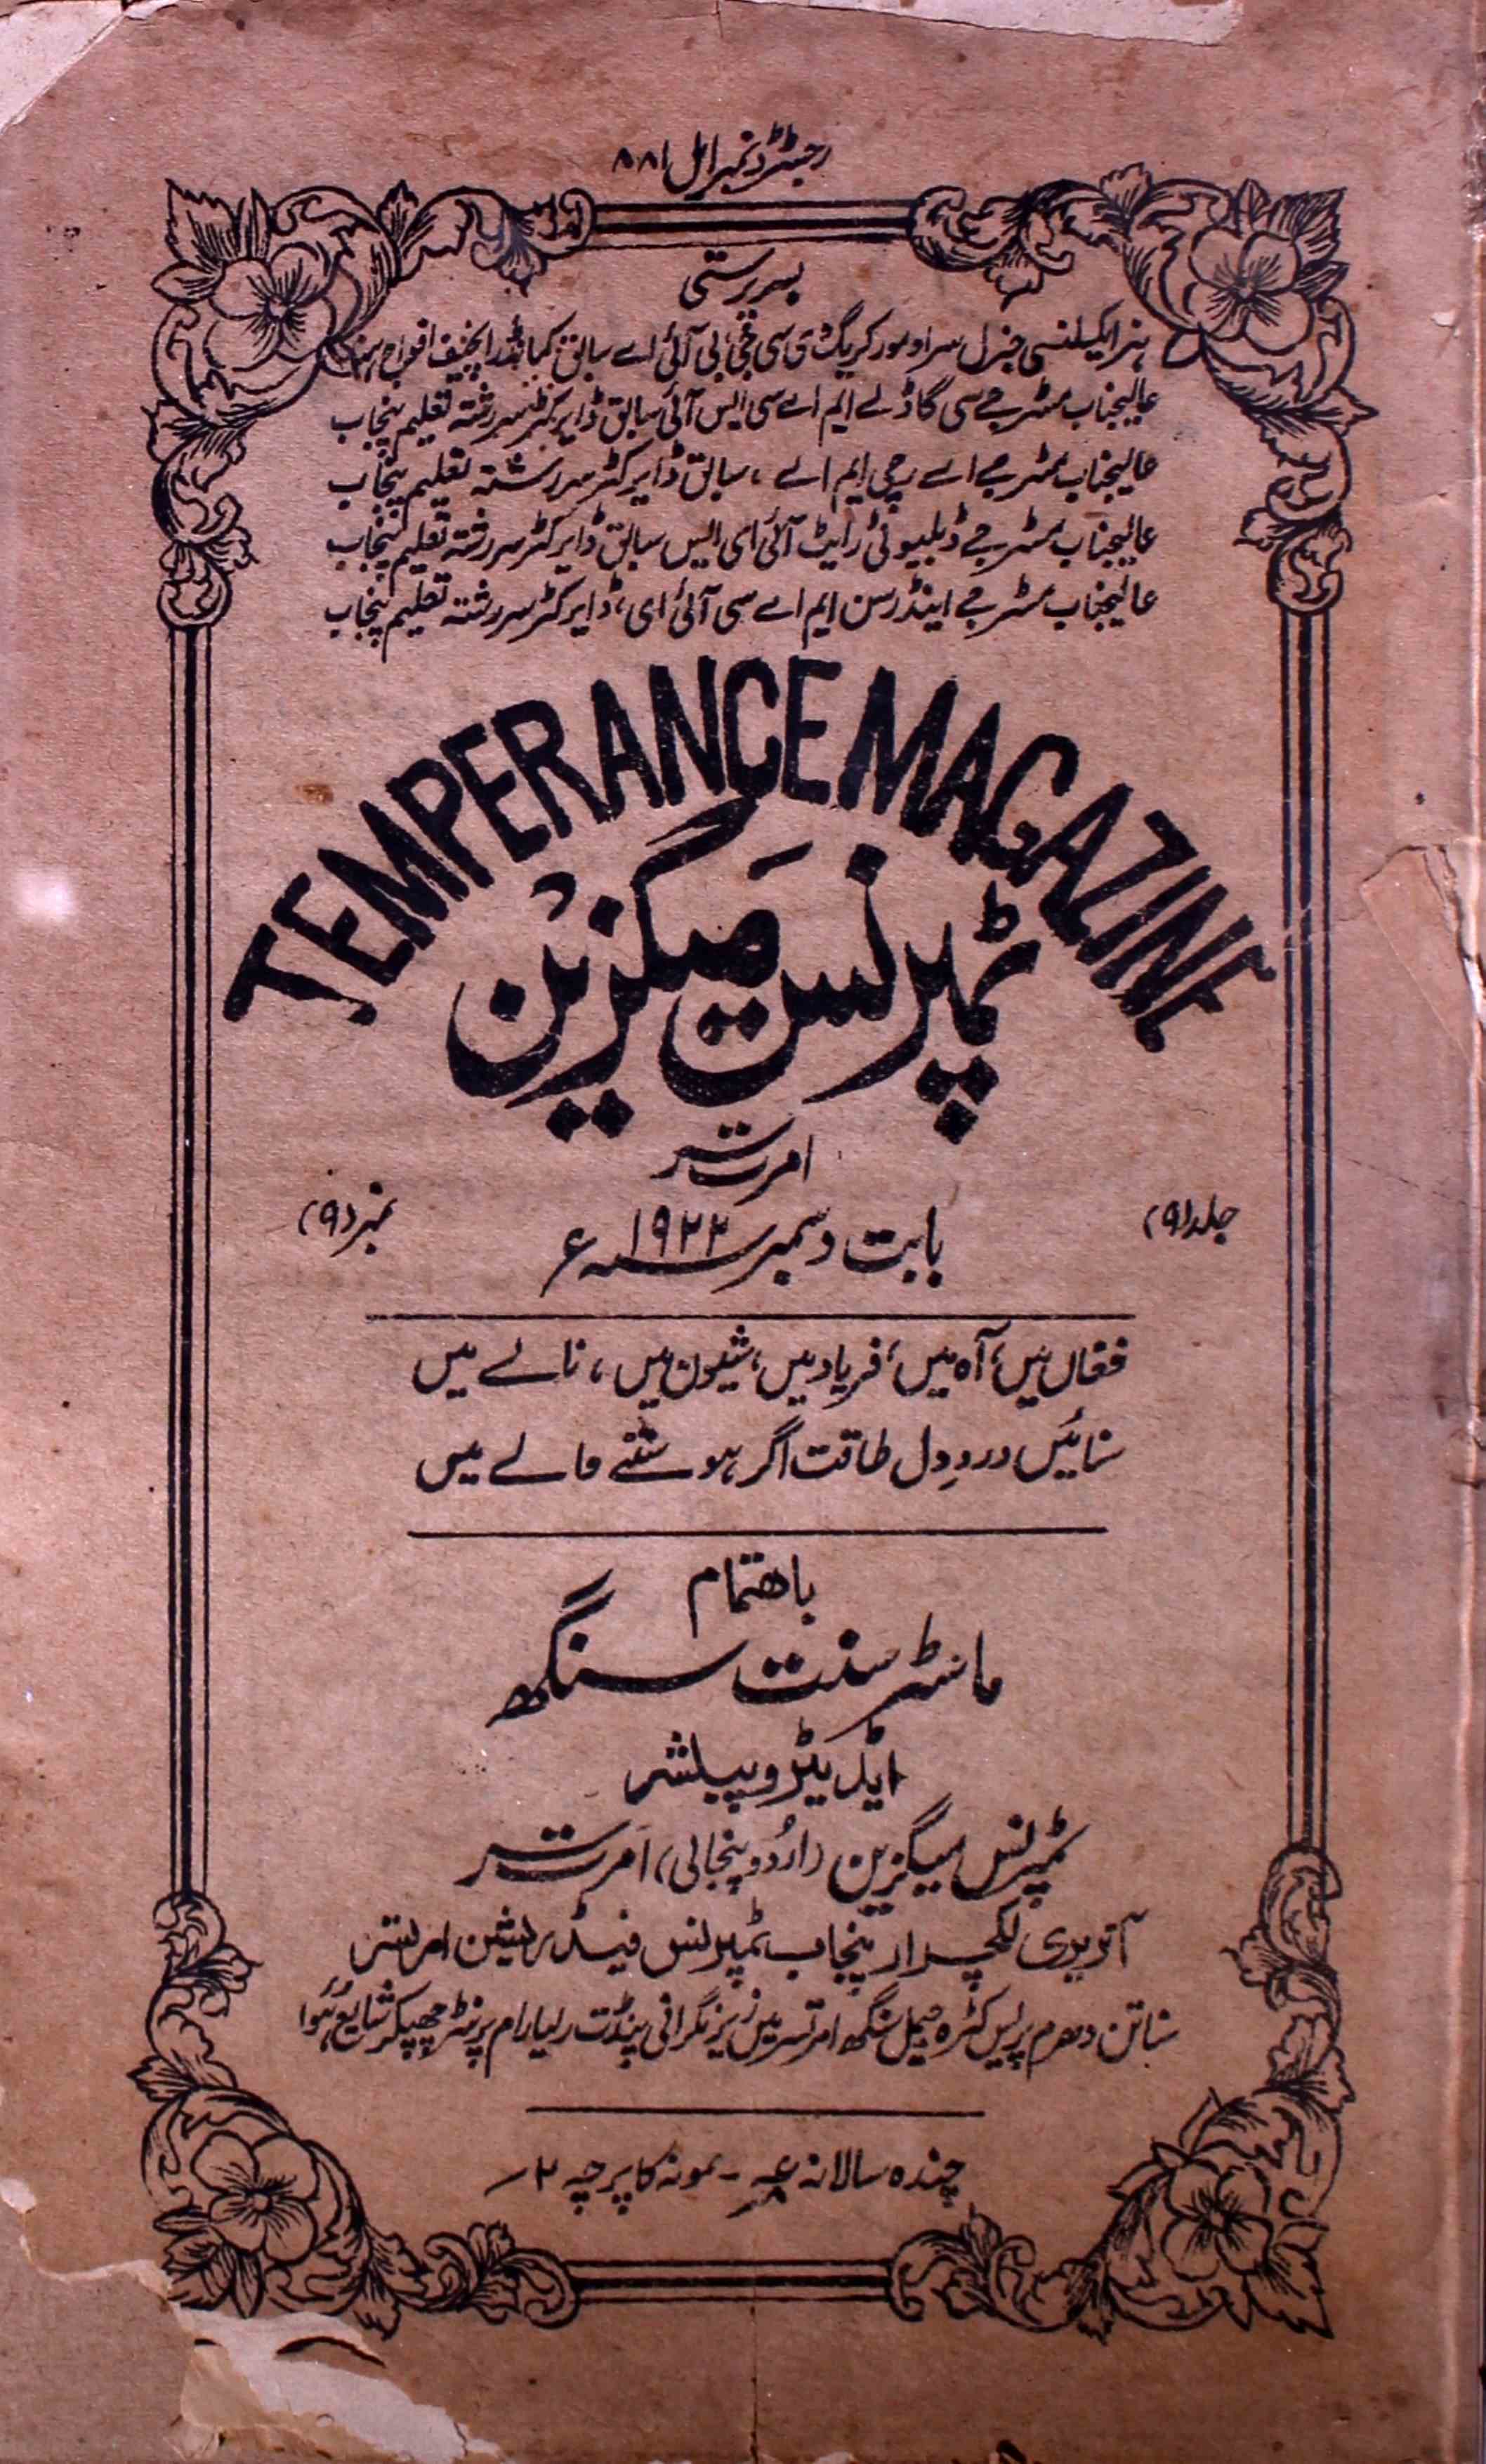 رجسٹرڈ نمبر ایل ۸۸۱
بسرپرستی
ہزایکسلنسی جنرل سر اومور کریگ جی سی بی آئی اے سابق کمانڈر انچیف افواج ہند
عالیجناب مسٹر جے سی گاڈلے ایم اے سی ایس آئی سابق ڈایرکٹر سررشتہ تعلیم پنجاب
عالیجناب مسٹر جے اے رچی ایم اے ، سابق ڈایرکٹر سررشتہ تعلیم پنجاب
عالیجناب مسٹر جے ڈبلیو ٹی رایٹ آئی ای ایس سابق ڈایرکٹر سررشتہ تعلیم پنجاب
عالیجناب مسٹر جے اینڈرسن ایم اے سی آئی ای، ڈایرکٹر سررشتہ تعلیم پنجاب
TEMPERANCE MAGAZINE
ٹمپرنس میگزین
امرت سر
جلد (۹)
نمبر (۹)
بابت دسمبر سنہ ۱۹۲۲ء
فغاں میں، آہ میں، فریاد میں، شیون میں، نالے میں
سنائیں دردِ دل طاقت اگر ہو سننے والے میں
باهتمام
ماسٹر سنت سنگھ
ایڈیٹر و پبلشر
ٹمپرنس میگزین (اُردو پنجابی) امرت سر
آنریری لکچرار پنجاب ٹمپرنس فیڈریشن امرتسر
سناتن دھرم پریس کٹرہ جیمل سنگھ امرتسر میں زیر نگرانی پنڈت رلیا رام پرنٹر چھپکر شایع ہُوا
چندہ سالانہ - نمونہ کا پرچہ ۲؍